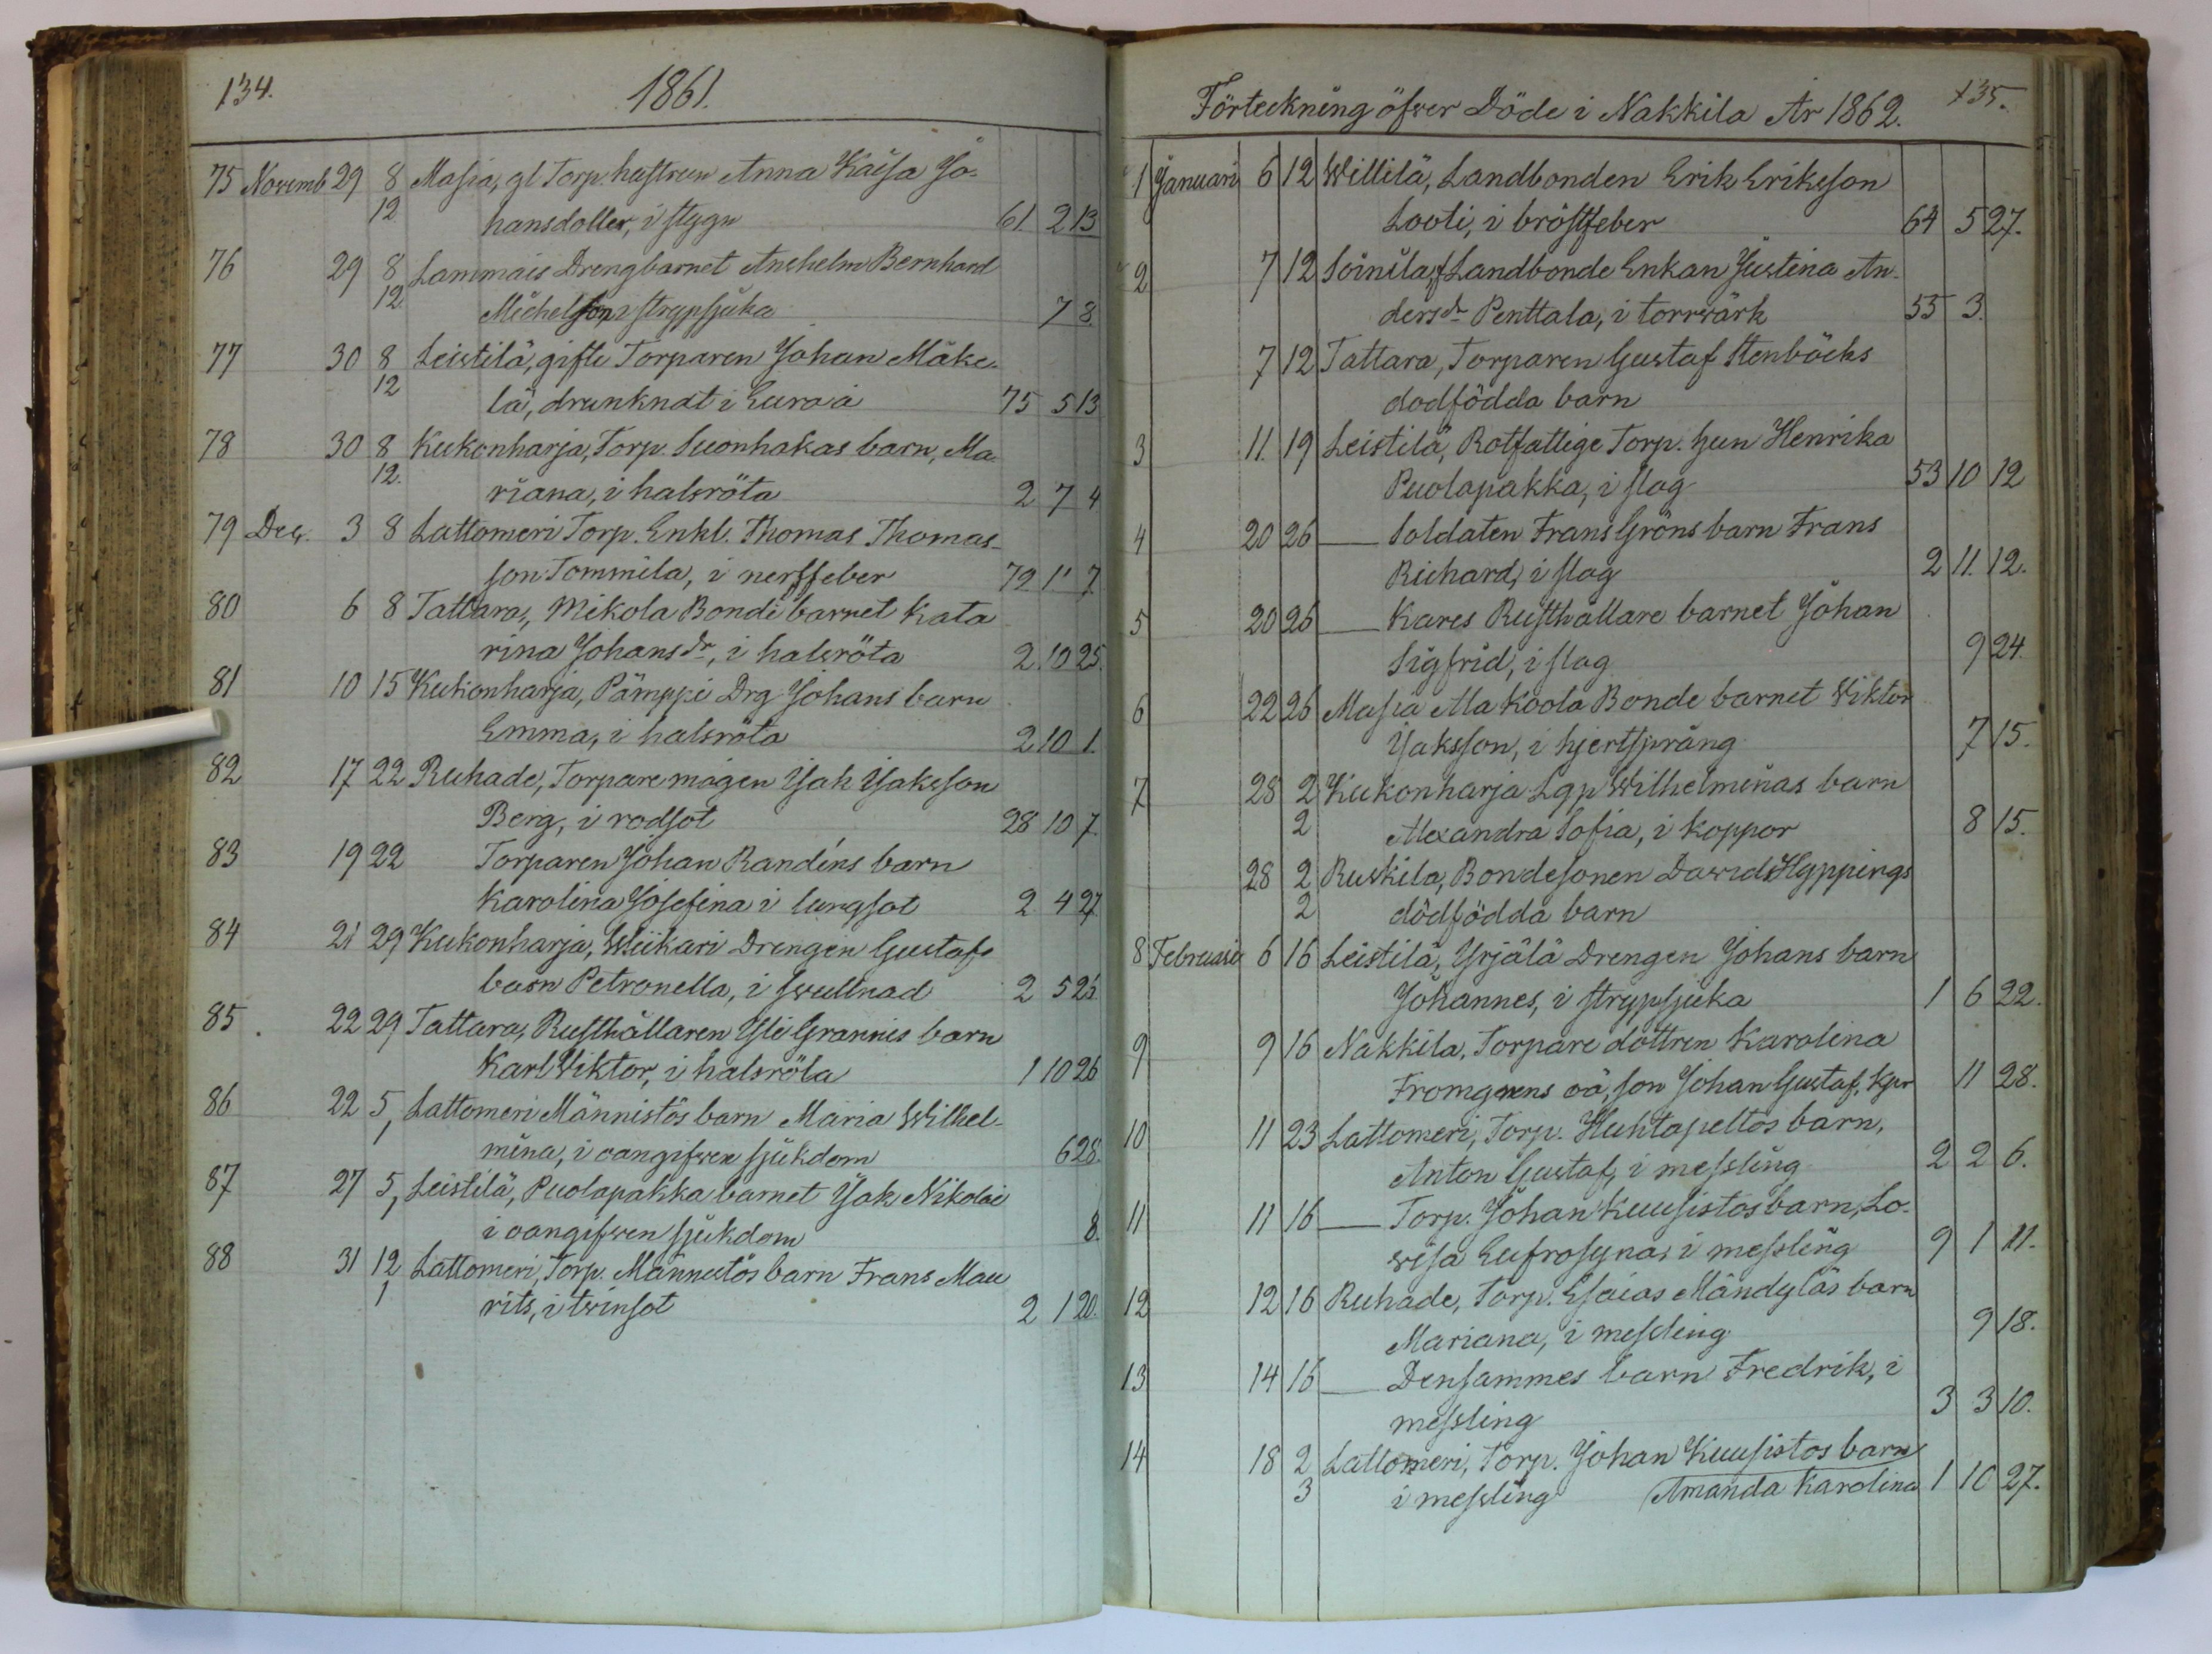 134.
1861.
75 Novemb 29 8 Masia, gl Torp. hustrun Anna Kaisa Jo-
12 hansdotter, i stygn 61 2 13
76 29 8 Lammais Drengbarnet Anshelm Bernhard
12 Michelsson i strypsjuka 7 8.
77 30 8 Leistilä, gifte Torparen Johan Mäke-
12 lä, drunknat i Eura å 75 5 13
78 30 8 Kukonharja, Torp. Suonhakas barn, Ma-
12. riana, i halsröta 2 7 4
79 Dec. 3 8 Lattomeri Torp. Enkl. Thomas Thomas-
son Tommila, i nerffeber 72 1 7
80 6 8 Tattara, Mikola Bonde barnet Kata
rina Johansdr, i halsröta 2 10 25
81 10 15 Kukonharja, Pämppi Drg Johans barn
Emma, i halsröta 2 10 1.
82 17 22 Ruhade, Torpare mågen Isak Isaksson
Berg, i rodsot 28 10 7.
83 19 22 Torparen Johan Randéns barn
Karolina Josefina i lungsot 2 4 27
84 21 29 Kukonharja, Wiikari Drengen Gustafs
barn Petronella, i swullnad 2 5 26
85. 22 29 Tattara, Rusthållaren Isli Grannis barn
Karl Viktor, i halsröta 1 10 26
86 22 5 Lattomeri Männistös barn Maria Wilhel-
1 mina, i oangifwen sjukdom 6 28.
87 27 5 Leistilä, Puolapakka barnet Isak Nikolai
1 i oangifwen sjukdom 8.
88 31 12 Lattomeri, Torp. Männistös barn Frans Mau
1 rits, i twinsot 2 1 20.
Förteckning öfwer Döde i Nakkila År 1862.
135.
1 Januari 6 12 Willilä, Landbonden Erik Eriksson
Looti, i bröstfeber 64 5 27.
2 7 12 Soinila, f Landbonde Enkan Justina An-
dersdr Penttala, i torrwärk 55 3.
7 12 Tattara, Torparen Gustaf Stenbäcks
dödfödda barn
3 11. 19 Leistilä, Rotfattige Torp. hun Henrika
Puolapakka, i slag 53 10 12
4 20 26 — Soldaten Frans Gröns barn Frans
Richard, i slag 2 11. 12.
5 20 26 — Kares Rusthållare barnet Johan
Sigfrid, i slag 9 24.
6 22 26 Masia Ala Koola Bonde barnet Wiktor
Isaksson, i hjertspräng 7 15.
7 28 2 Kukonharja Lgp Wilhelminas barn
2 Alexandra Sofia, i koppor 8 15.
28 2 Ruskila, Bondesonen Dawid Hyppings
2 dödfödda barn
8 Februari 6 16 Leistilä, Yrjälä Drengen Johans barn
Johannes, i strypsjuka 1 6 22.
9 9 16 Nakkila, Torpare dottren Karolina
Fromgrens oä, son Johan Gustaf, kpr 11 28.
10 11 23 Lattomeri, Torp. Huhtapeltos barn,
Anton Gustaf, i messling 2 2 6.
11 11 16 — Torp. Johan Kuusistos barn, Lo-
wisa Eufrosyna, i messling 9 1 11.
12 12 16 Ruhade, Torp. Esaias Mändyläs barn
Mariana, i messling 9 18.
13 14 16 — Densammes barn Fredrik, i
messling 3 3 10.
14 18 2 Lattomeri, Torp. Johan Kuusistos barn
3 i messling Amanda Karolina 1 10 27.